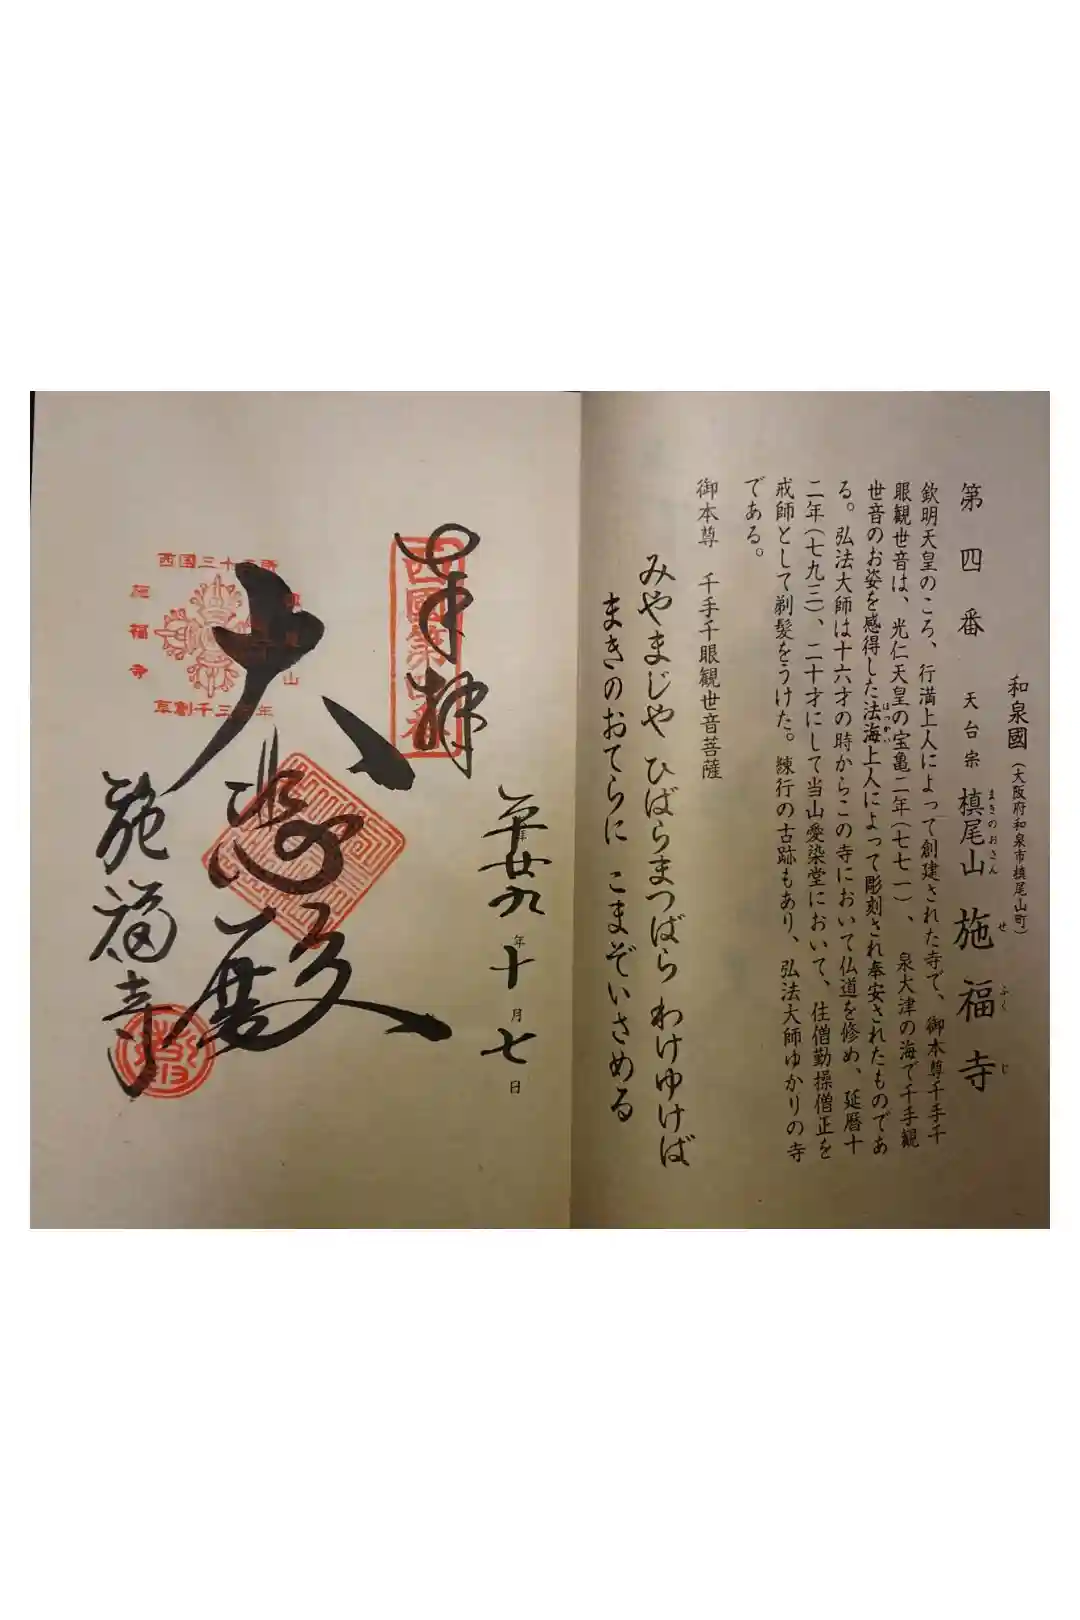 和泉國(大阪府和泉市槙尾山町)
第四番 天台宗 槙尾山 施福寺
まきのおさん せふくじ
欽明天皇のころ、行満上人によって創建された寺で、御本尊千手千
眼観世音は、光仁天皇の宝亀二年(七七一)、泉大津の海で千手観
世音のお姿を感得した法海上人によって彫刻され奉安されたものであ
はっかい
る。弘法大師は十六才の時からこの寺において仏道を修め、延暦十
二年(七九三)、二十才にして当山愛染堂において、住僧勤操僧正を
戒師として剃髪をうけた。練行の古跡もあり、弘法大師ゆかりの寺
である。
御本尊 千手千眼観世音菩薩
みやまじや ひばらまつばら わけゆけば
まきのおてらに こまぞいさめる
平成廿九年十月七日
奉拝
西國第四番
大悲殿
施福寺
西国三十三所
施福寺
草創千三百年